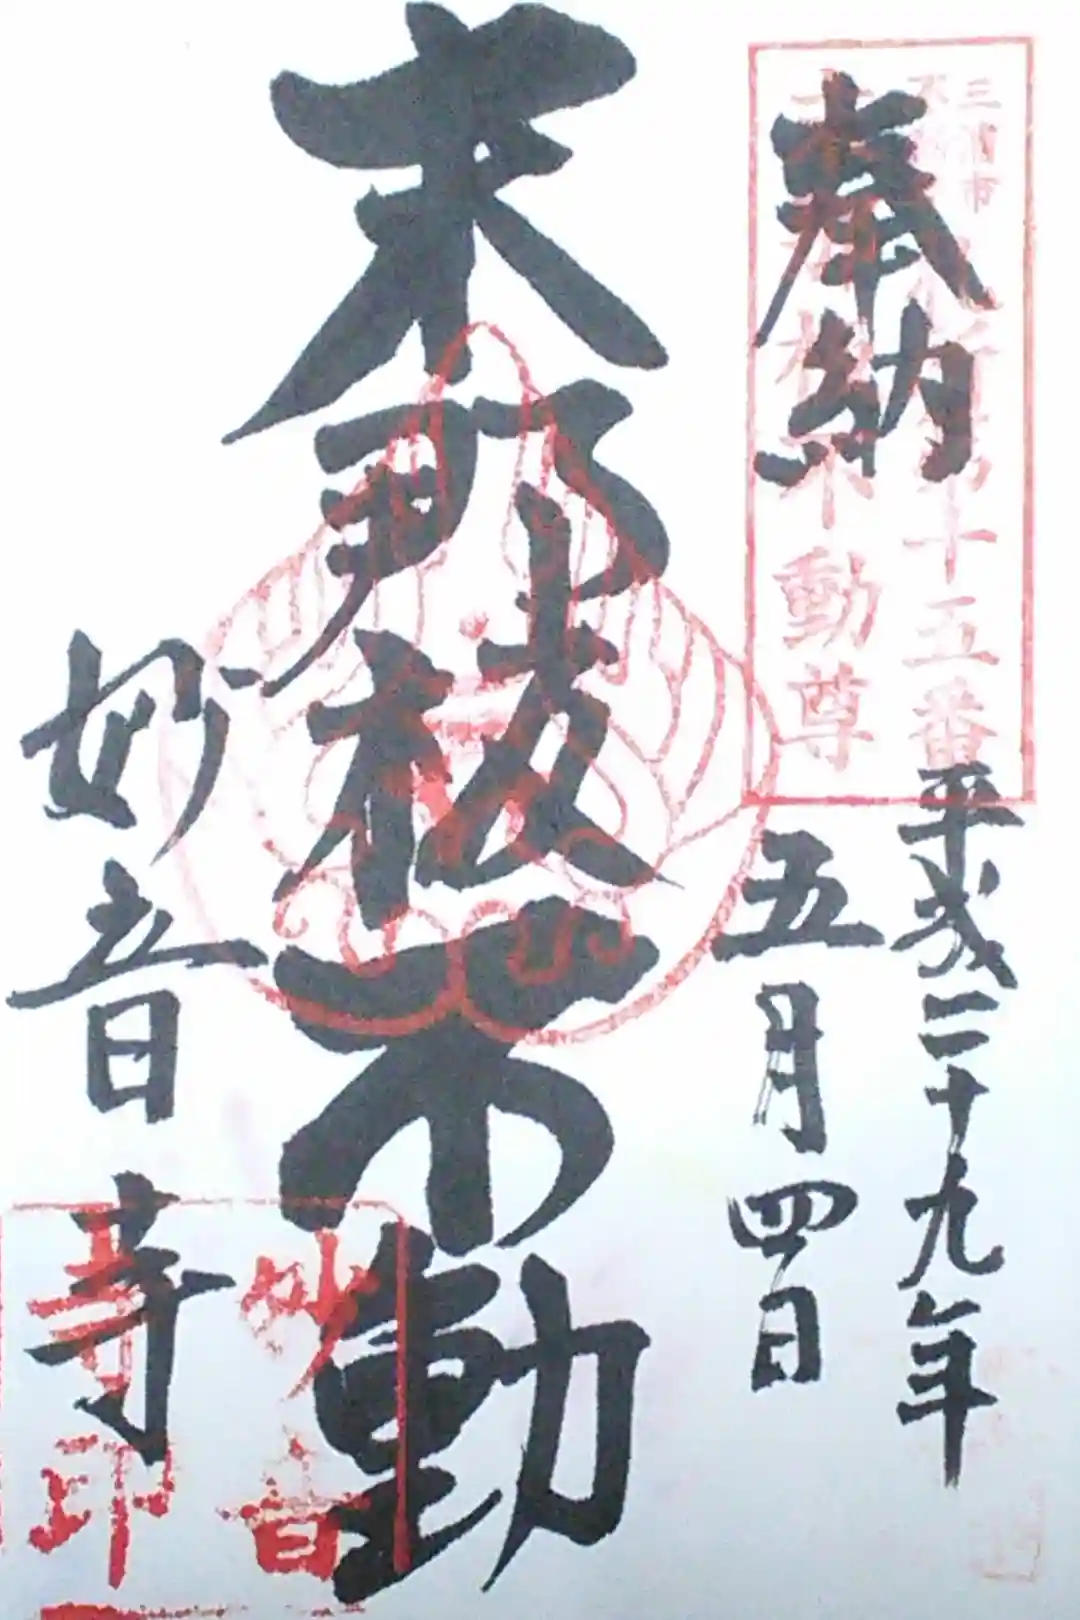 三浦市
第十五番
不動尊
奉納
平成二十九年
五月四日
末那 不動
妙音寺
妙音寺印